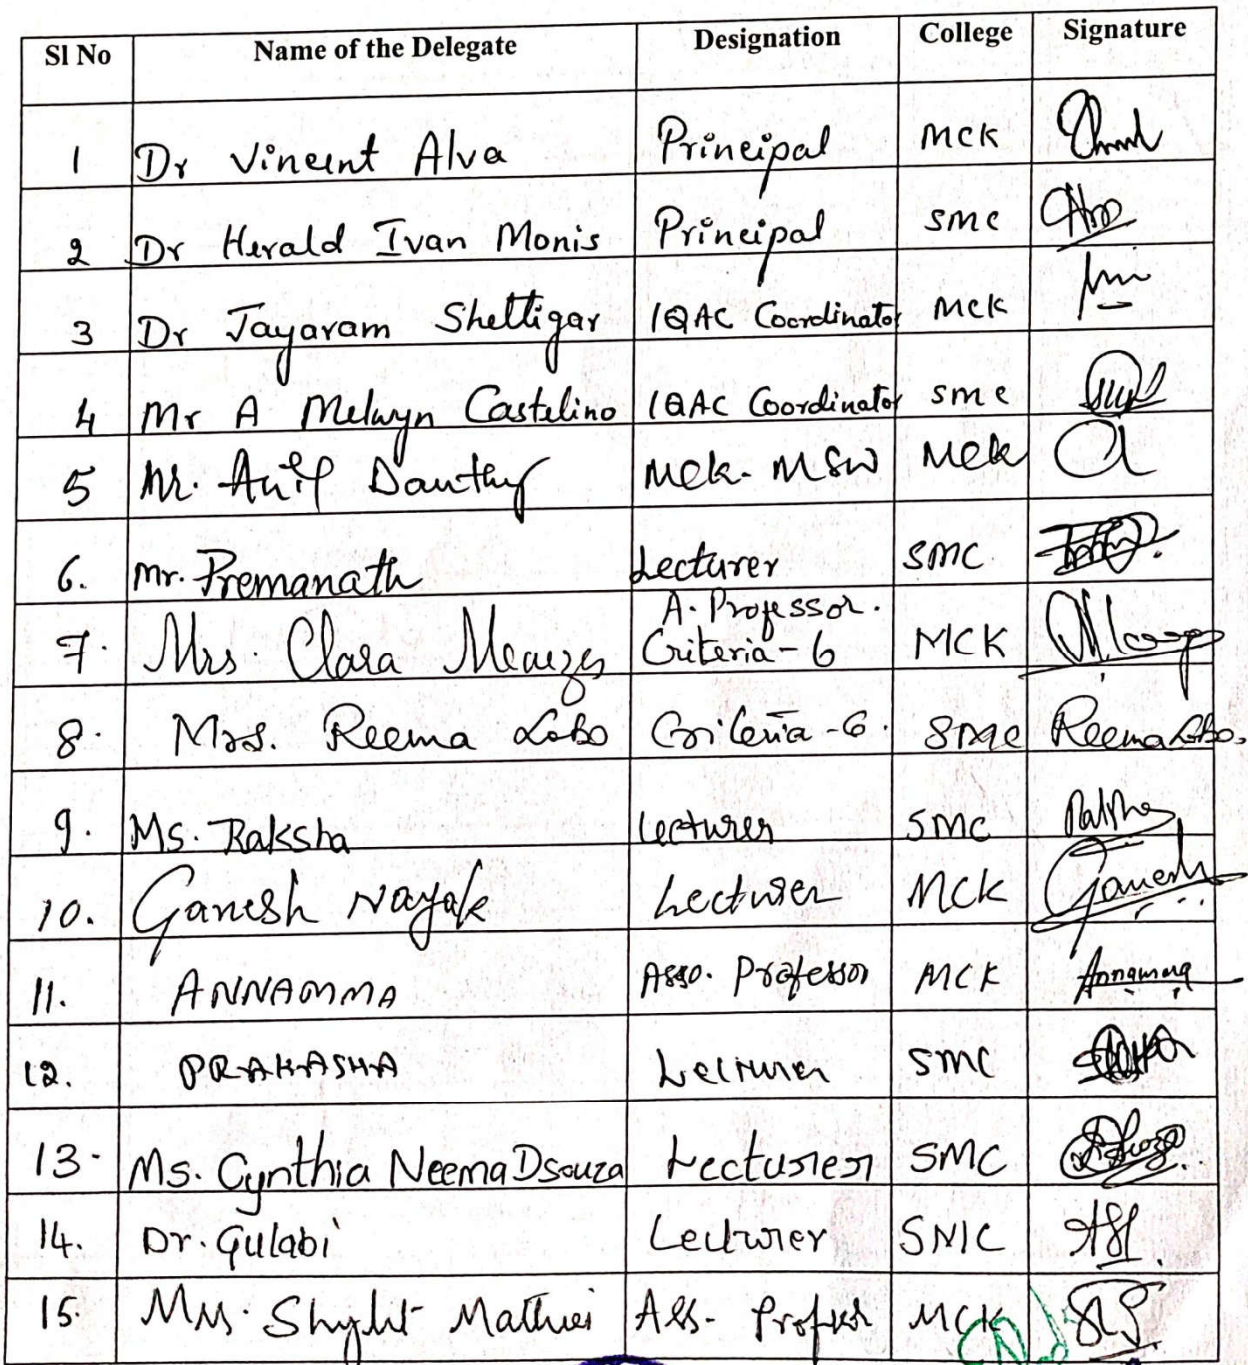 Sl No Name of the Delegate Designation College Signature
1 Dr Vincent Alva Principal MCK
2 Dr Herald Ivan Monis Principal SMC
3 Dr Jayaram Shettigar IQAC Coordinator MCK
4 Mr A Melwyn Castelino IQAC Coordinator SMC
5 Mr. MCK- MSW MCK
6. Mr. Premanath Lecturer SMC
A. Professor.
7. Mrs. Clara Menezes Criteria-6 MCK
8. Mrs. Reema Lobo Criteria-6. SMC Reema Lobo.
9. Ms. Raksha Lecturer SMC Raksha
10. Ganesh Nayak Lecturer MCK Ganesh
11. ANNAMMA Asso. Professor MCK Annamma
12. PRAKASHA Lecturer SMC
13. Ms. Cynthia Neema Dsouza Lecturer SMC
14. Dr. Gulabi Lecturer SMC
15. Ass. MCK